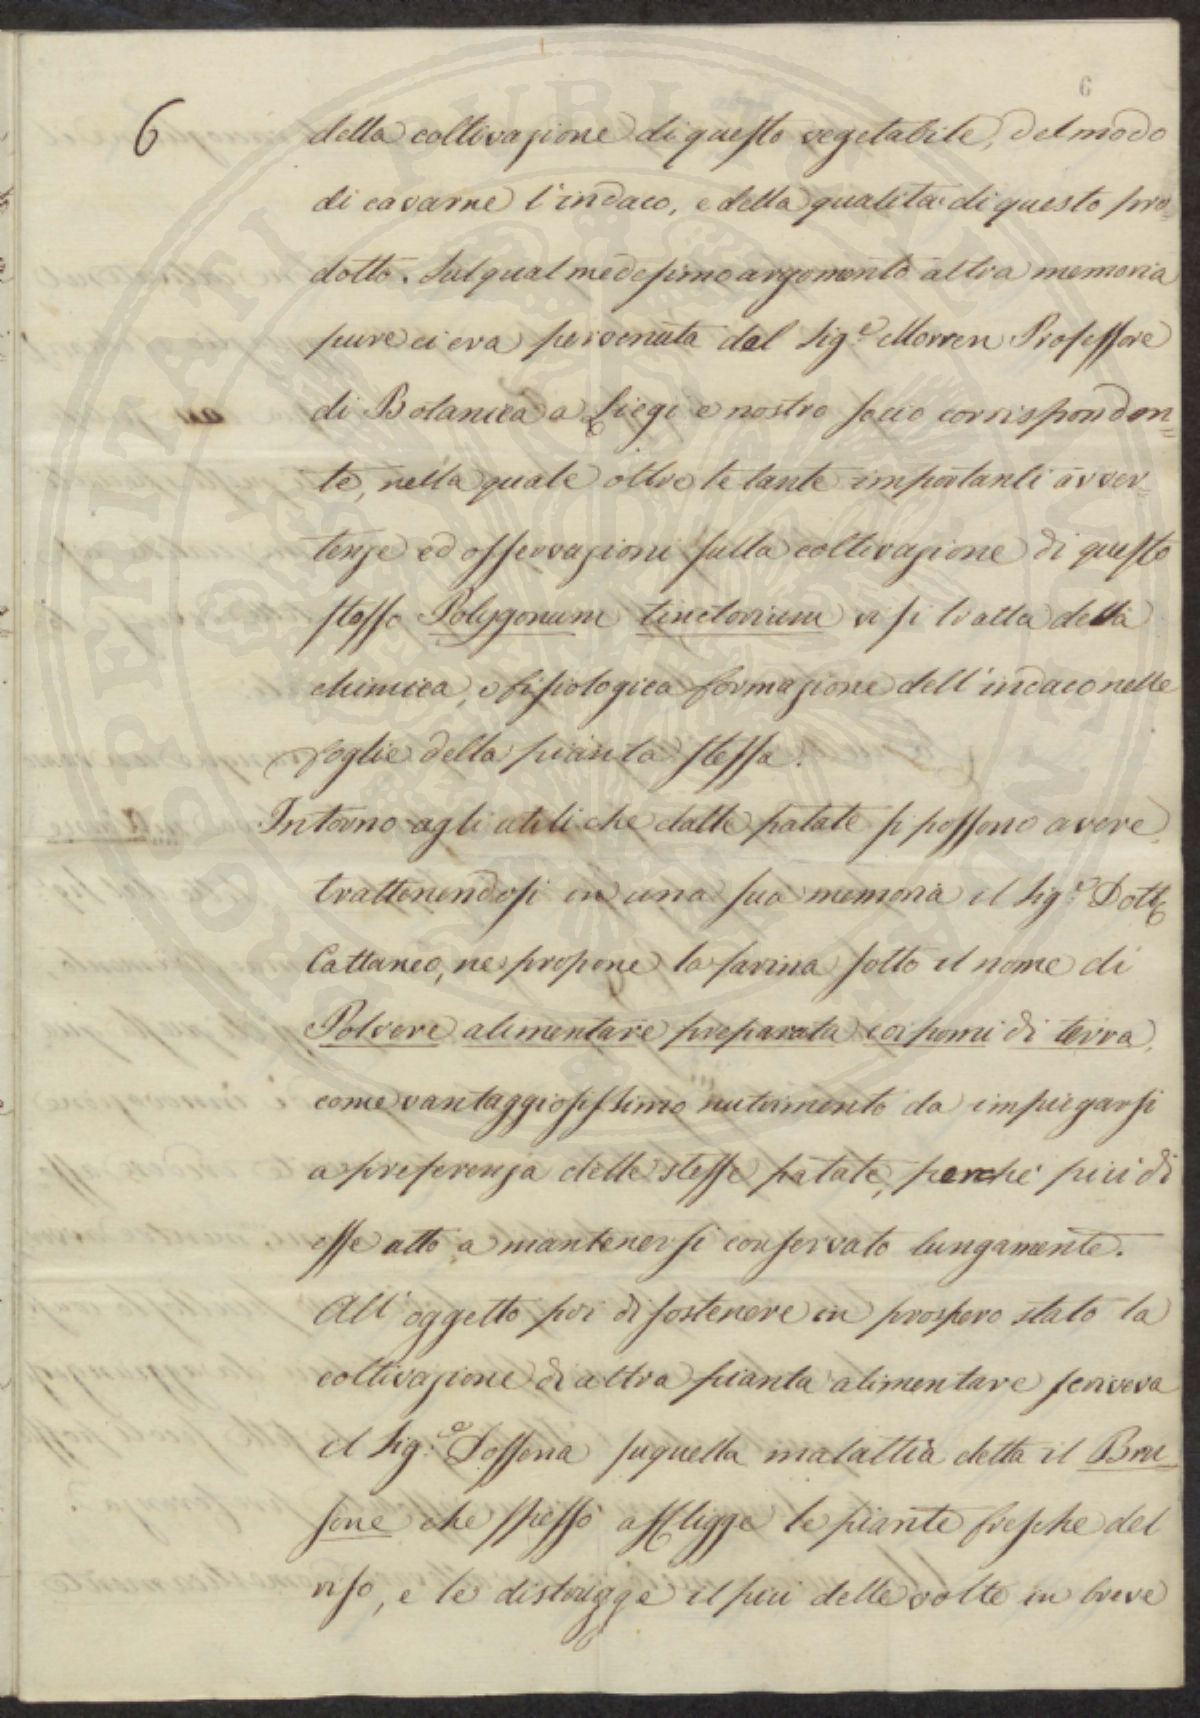 6
6
della coltivazione di questo vegetabile, del modo
di cavarne l'indaco, e della qualità di questo pro=
dotto. Sul qual medesimo argomento altra memoria
pure ci era pervenuta dal Sig.e Morren Professore
di Botanica a Liegi e nostro socio corrisponden=
te, nella quale oltre le tante importanti avver=
tenze ed osservazioni sulla coltivazione di questo
stesso Polygonum tinctorium vi si tratta della
chimica, e fisiologica formazione dell'indaco nelle
foglie della pianta stessa.
Intorno agli utili che dalle patate si possono avere
trattenendosi in una sua memoria il Sig.e Dott.
Cattaneo, ne propone la farina sotto il nome di
Polvere alimentare preparata coi pomi di terra,
come vantaggiosissimo nutrimento da impiegarsi
a preferenza delle stesse patate, perchè più di
esse atto a mantenersi conservato lungamente.
All'oggetto poi di sostenere in prospero stato la
coltivazione di altra pianta alimentare scriveva
il Sig.e Dossena su quella malattia detta il Bru
sone che spesso affligge le piante fresche del
riso, e le distrugge il più delle volte in breve
PROSPERITATI PUBLICAE AUGENDAE